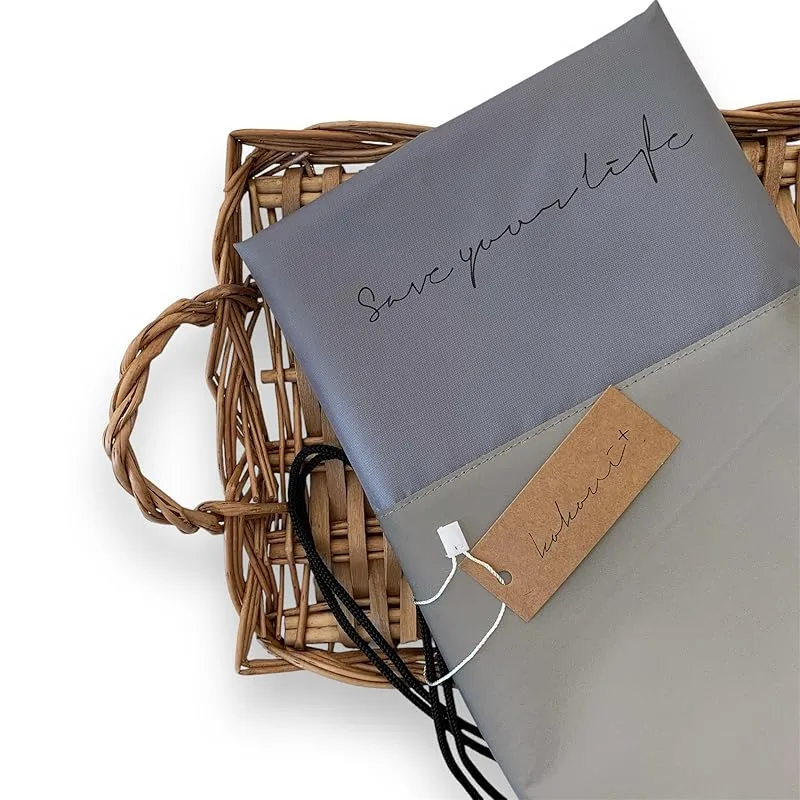 Save your life
kokoni+